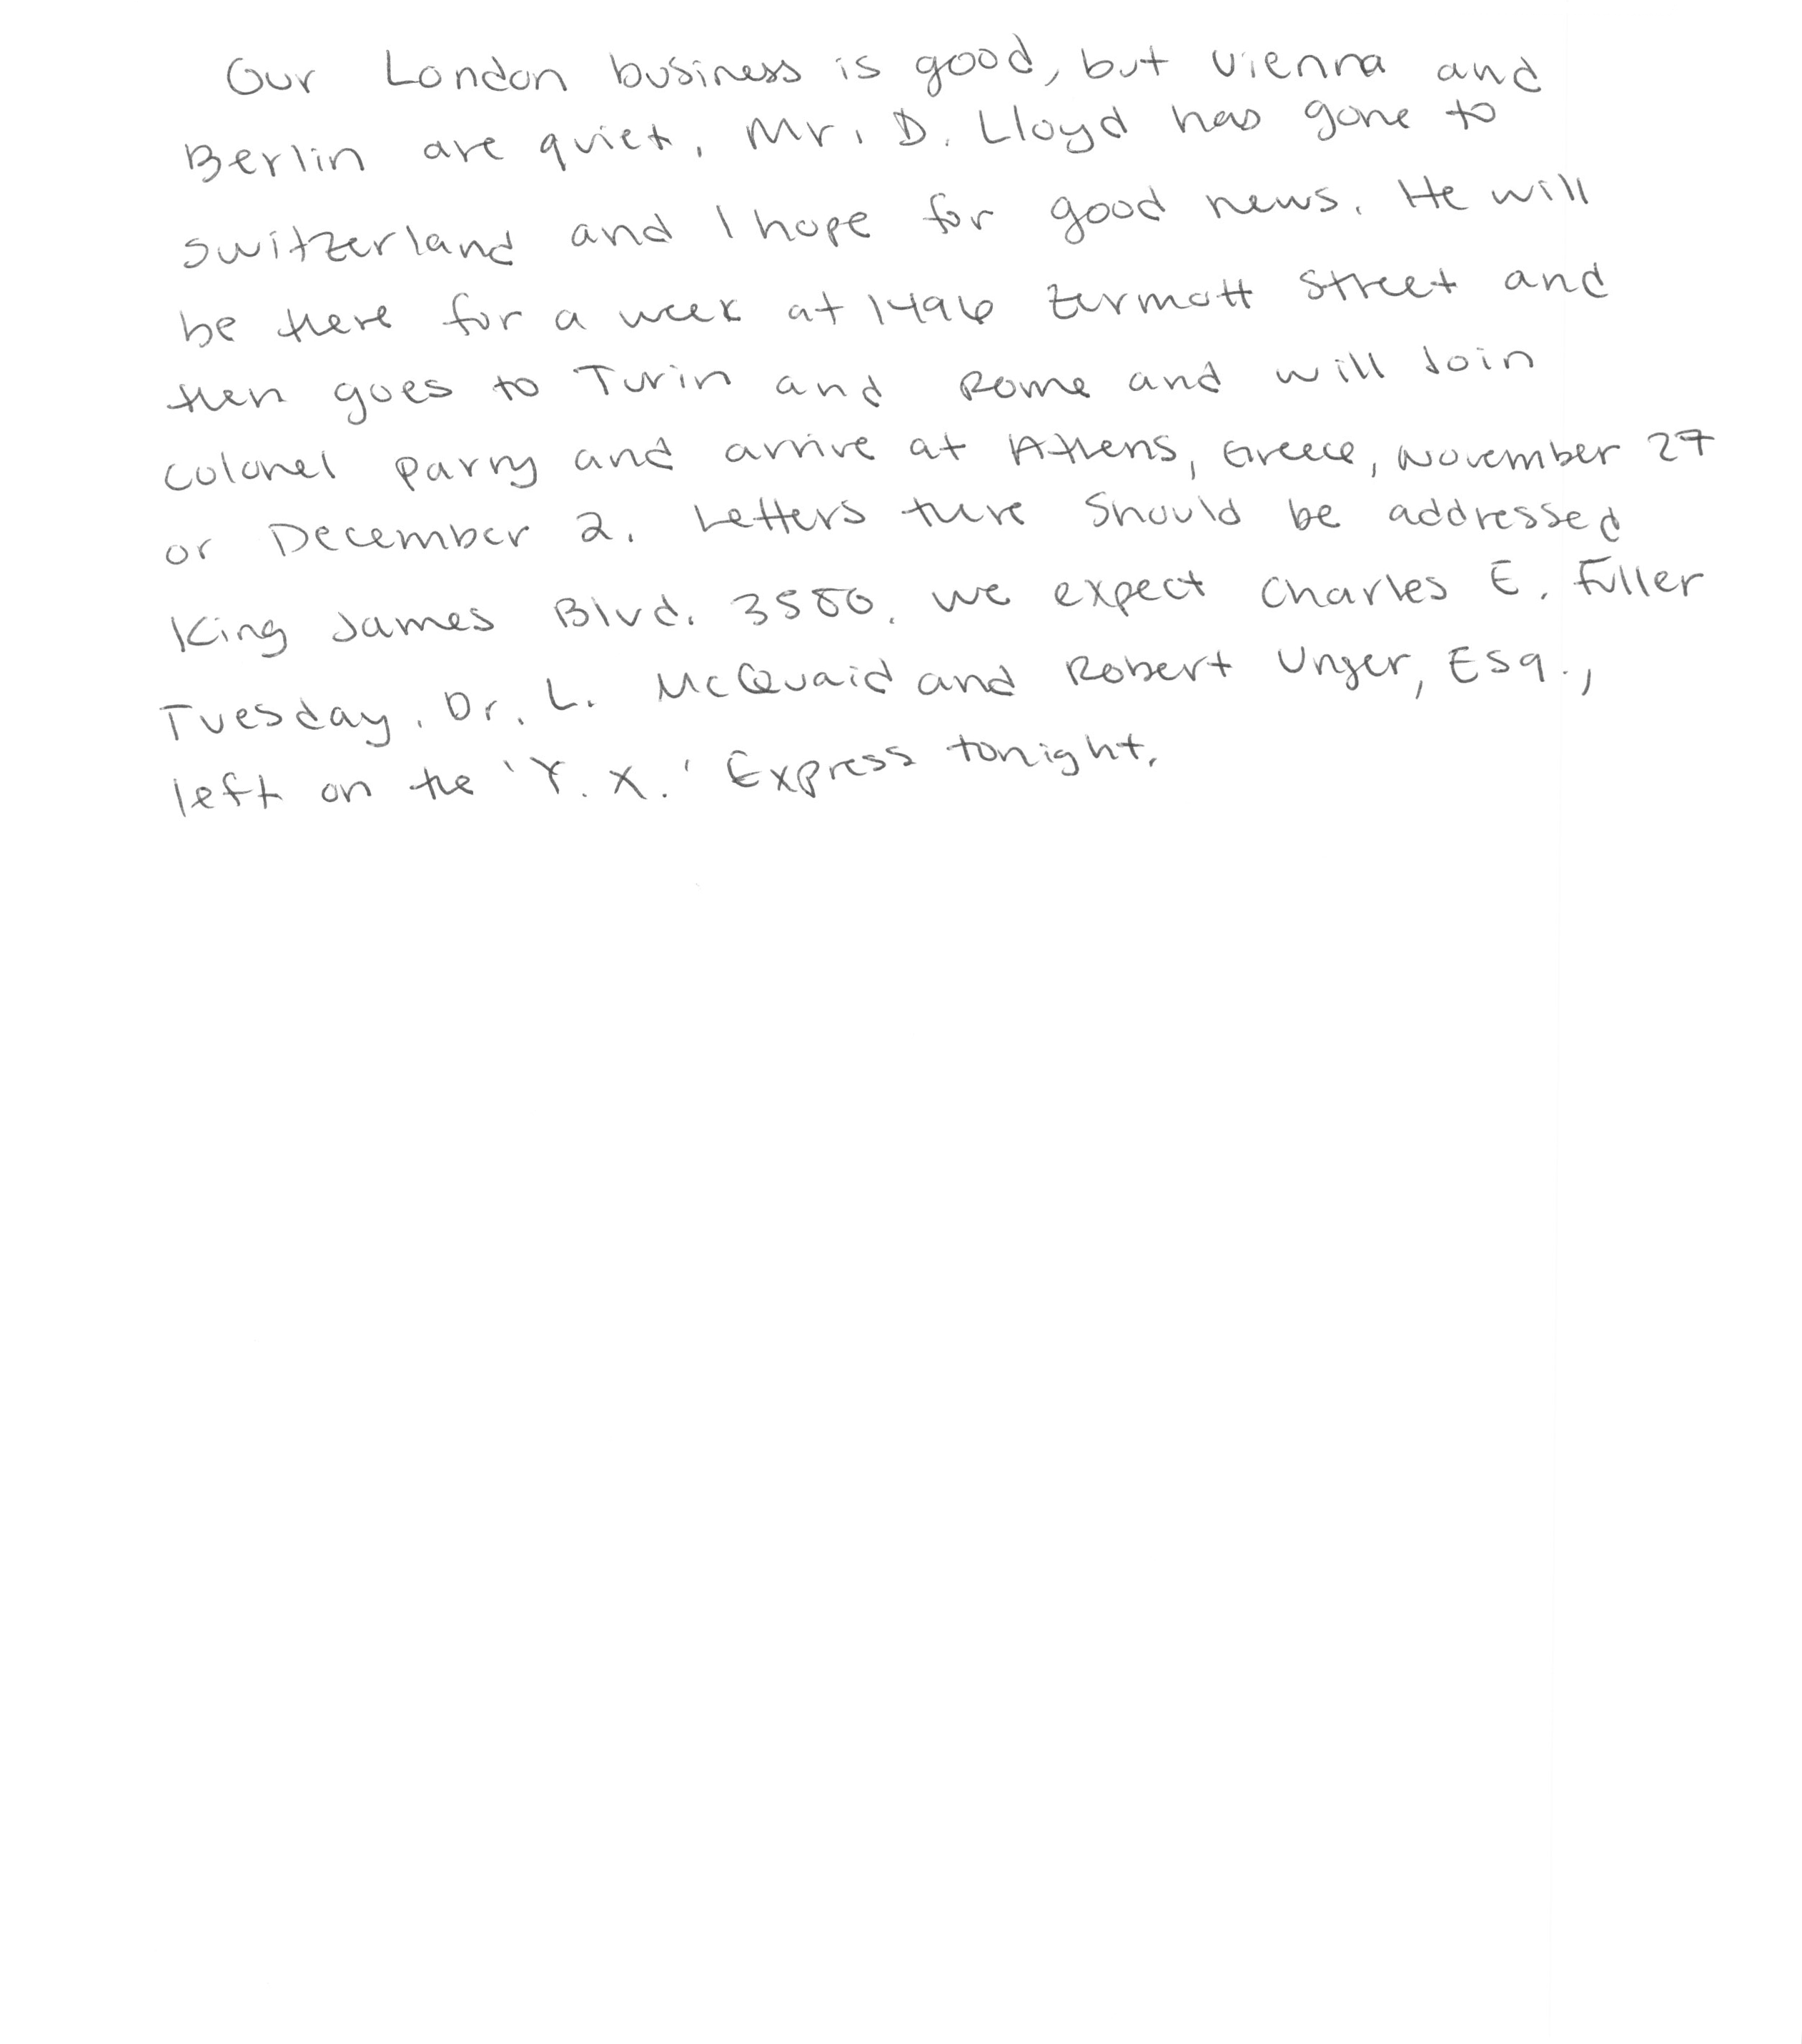 Our London business is good, but Vienna and
Berlin are quiet. Mr. D. Lloyd has gone to
Switzerland and I hope for good news. He will
be there for a week at 1496 Zermott Street and
then goes to Turin and Rome and will Join
Colonel Parry and arrive at Athens, Greece, November 27
or December 2. Letters there should be addressed
King James Blvd. 3580. We expect Charles E. Fuller
Tuesday. Dr. L. McQuaid and Robert Unger, Esq.,
left on the 'Y. X.' Express tonight.